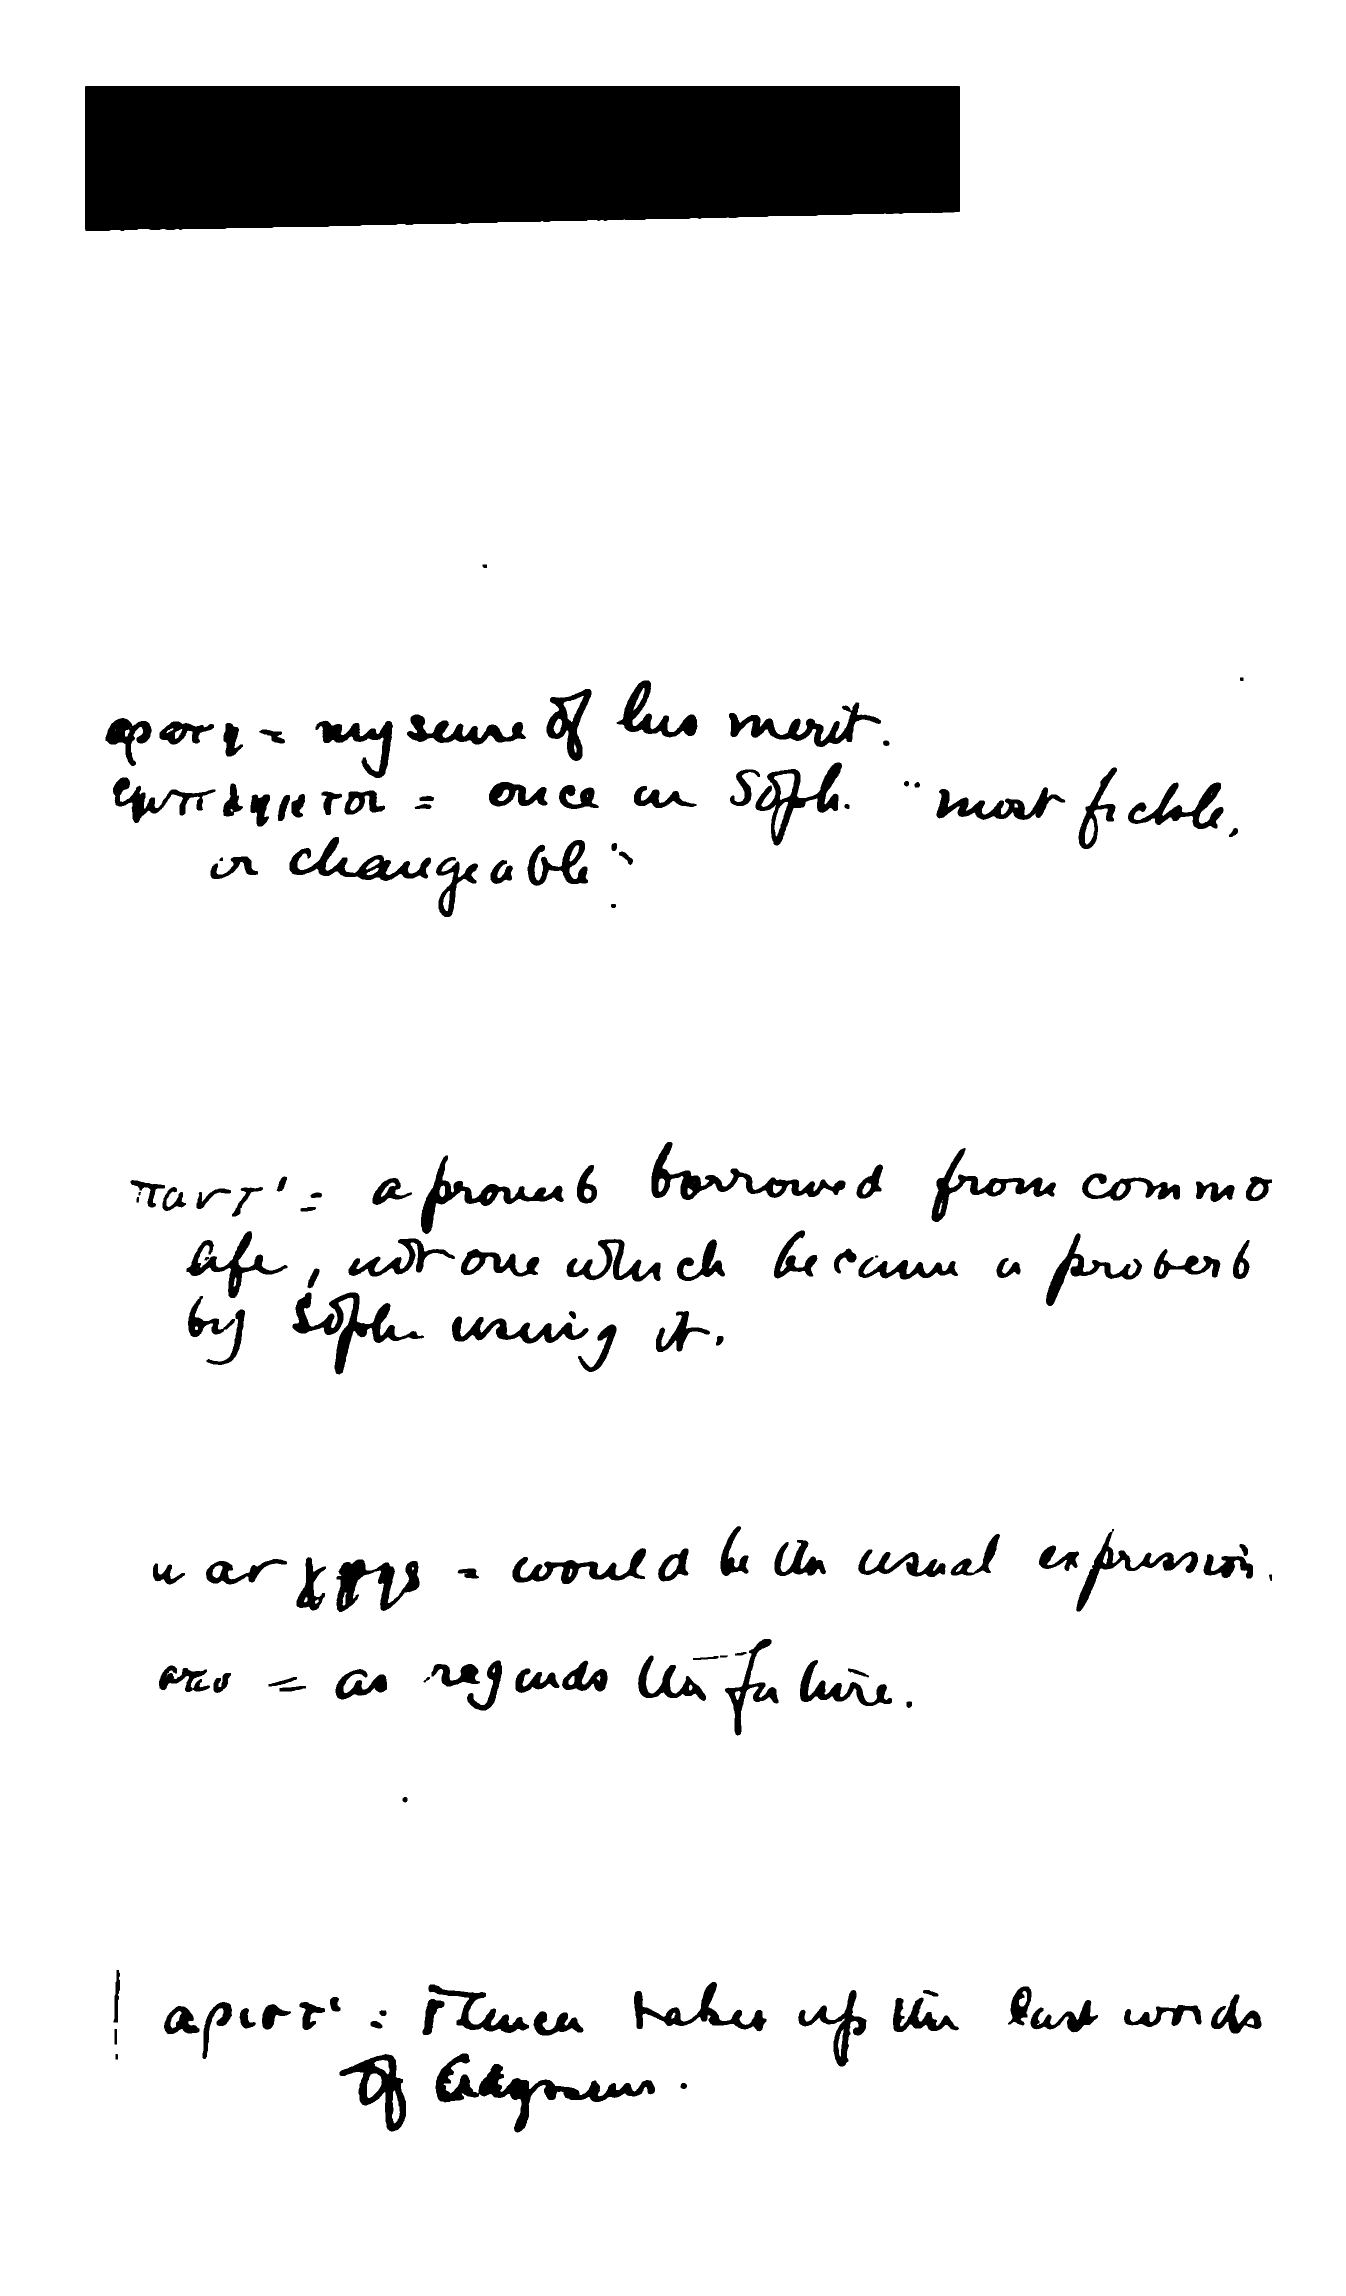 αρετη = my sense of his merit.
εμπληκτοι = once in Soph. "most fickle,
or changeable"
παντ' = a proverb borrowed from commo
life, not one which became a proverb
by Soph. using it.
= would be the usual expression.
= as regards the future.
αριστ' : Hence takes up the last words
of